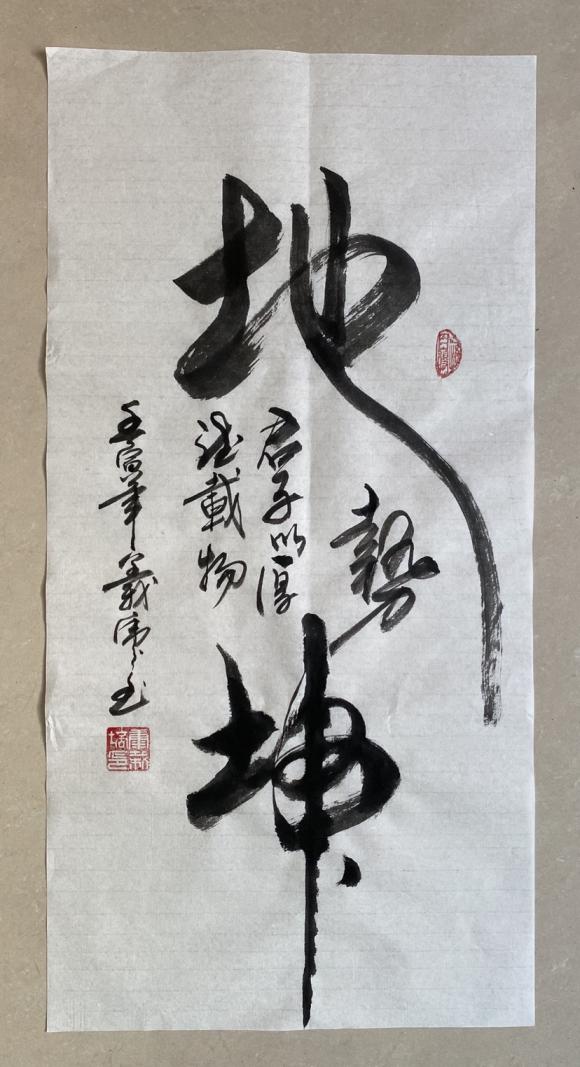 地
勢
坤
君子以厚
德載物
壬寅年義